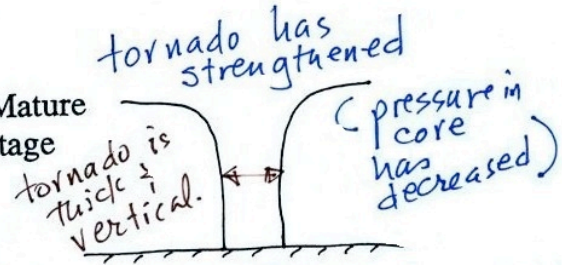 tornado has
strengthened
Mature
tage
tornado is
thick &
vertical.
(pressure in
core
has
decreased)